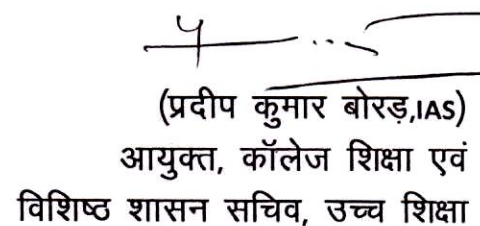 (प्रदीप कुमार बोरड़,IAS)
आयुक्त, कॉलेज शिक्षा एवं
विशिष्ठ शासन सचिव, उच्च शिक्षा